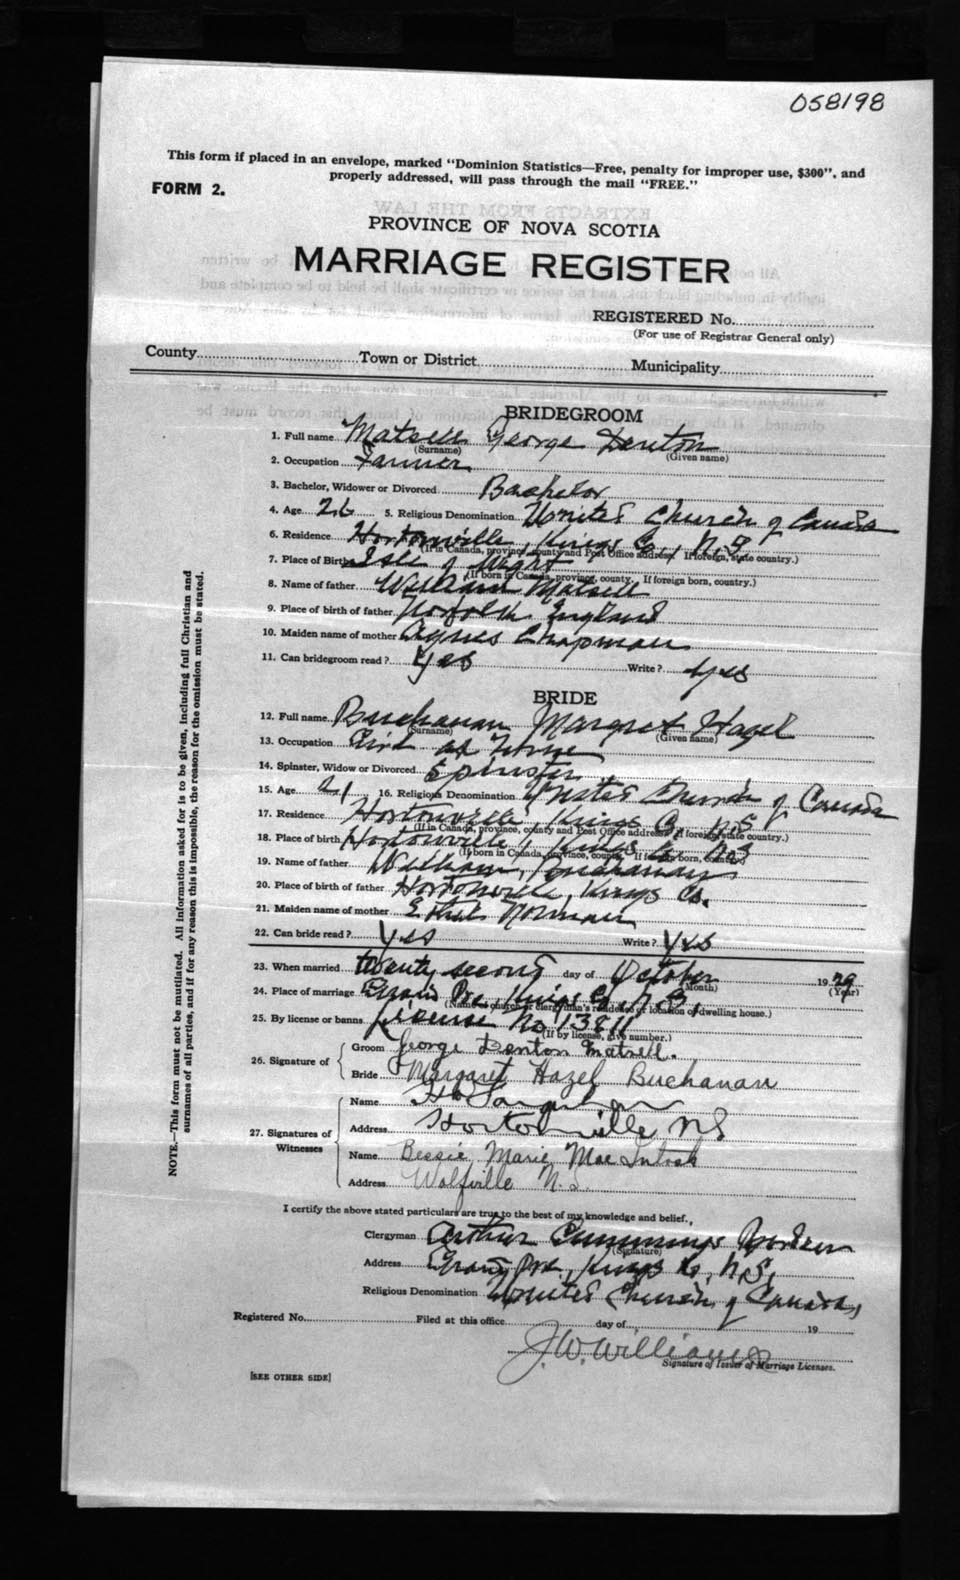 058198
This form if placed in an envelope, marked "Dominion Statistics—Free, penalty for improper use, $300", and
properly addressed, will pass through the mail "FREE."
FORM 2.
PROVINCE OF NOVA SCOTIA
MARRIAGE REGISTER
REGISTERED No.
(For use of Registrar General only)
County Town or District Municipality
BRIDEGROOM
1. Full name Matsell George Denton
(Surname) (Given name)
2. Occupation Farmer
3. Bachelor, Widower or Divorced Bachelor
4. Age 26 5. Religious Denomination United Church of Canada
6. Residence Hortonville, Kings Co., N.S.
(If in Canada, province, county and Post Office address. If foreign, state country.)
7. Place of Birth Isle of Wight
(If born in Canada, province, county. If foreign born, country.)
8. Name of father William Matsell
9. Place of birth of father Norfolk England
10. Maiden name of mother Agnes Chapman
11. Can bridegroom read? Yes Write? Yes
BRIDE
12. Full name Buchanan Margret Hazel
(Surname) (Given name)
13. Occupation Girl at Home
14. Spinster, Widow or Divorced Spinster
15. Age 21 16. Religious Denomination United Church of Canada
17. Residence Hortonville, Kings Co. N.S
(If in Canada, province, county and Post Office address. If foreign, state country.)
18. Place of birth Hortonville, Kings Co. N.S
(If born in Canada, province, county. If foreign born, country.)
19. Name of father William Buchanan
20. Place of birth of father Hortonville, Kings Co.
21. Maiden name of mother Ethel Norman
22. Can bride read? Yes Write? Yes
23. When married twenty second day of October 1929
(Month) (Year)
24. Place of marriage Grand Pre, Kings Co. N.S.,
(Name of church or clergyman's residence or location of dwelling house.)
25. By license or banns License No 13811
(If by license, give number.)
26. Signature of Groom George Denton Matsell.
Bride Margaret Hazel Buchanan
27. Signatures of Witnesses
Name
Address Hortonville NS
Name Bessie Marie MacIntosh
Address Wolfville N.S.
I certify the above stated particulars are true to the best of my knowledge and belief.
Clergyman Arthur Cummings
(Signature)
Address Grand Pre, Kings Co, N.S,
Religious Denomination United Church of Canada,
Registered No. Filed at this office day of 19
J.W. Williams
Signature of Issuer of Marriage Licenses.
[SEE OTHER SIDE]
NOTE.—This form must not be mutilated. All information asked for is to be given, including full Christian and
surnames of all parties, and if for any reason this is impossible, the reason for the omission must be stated.